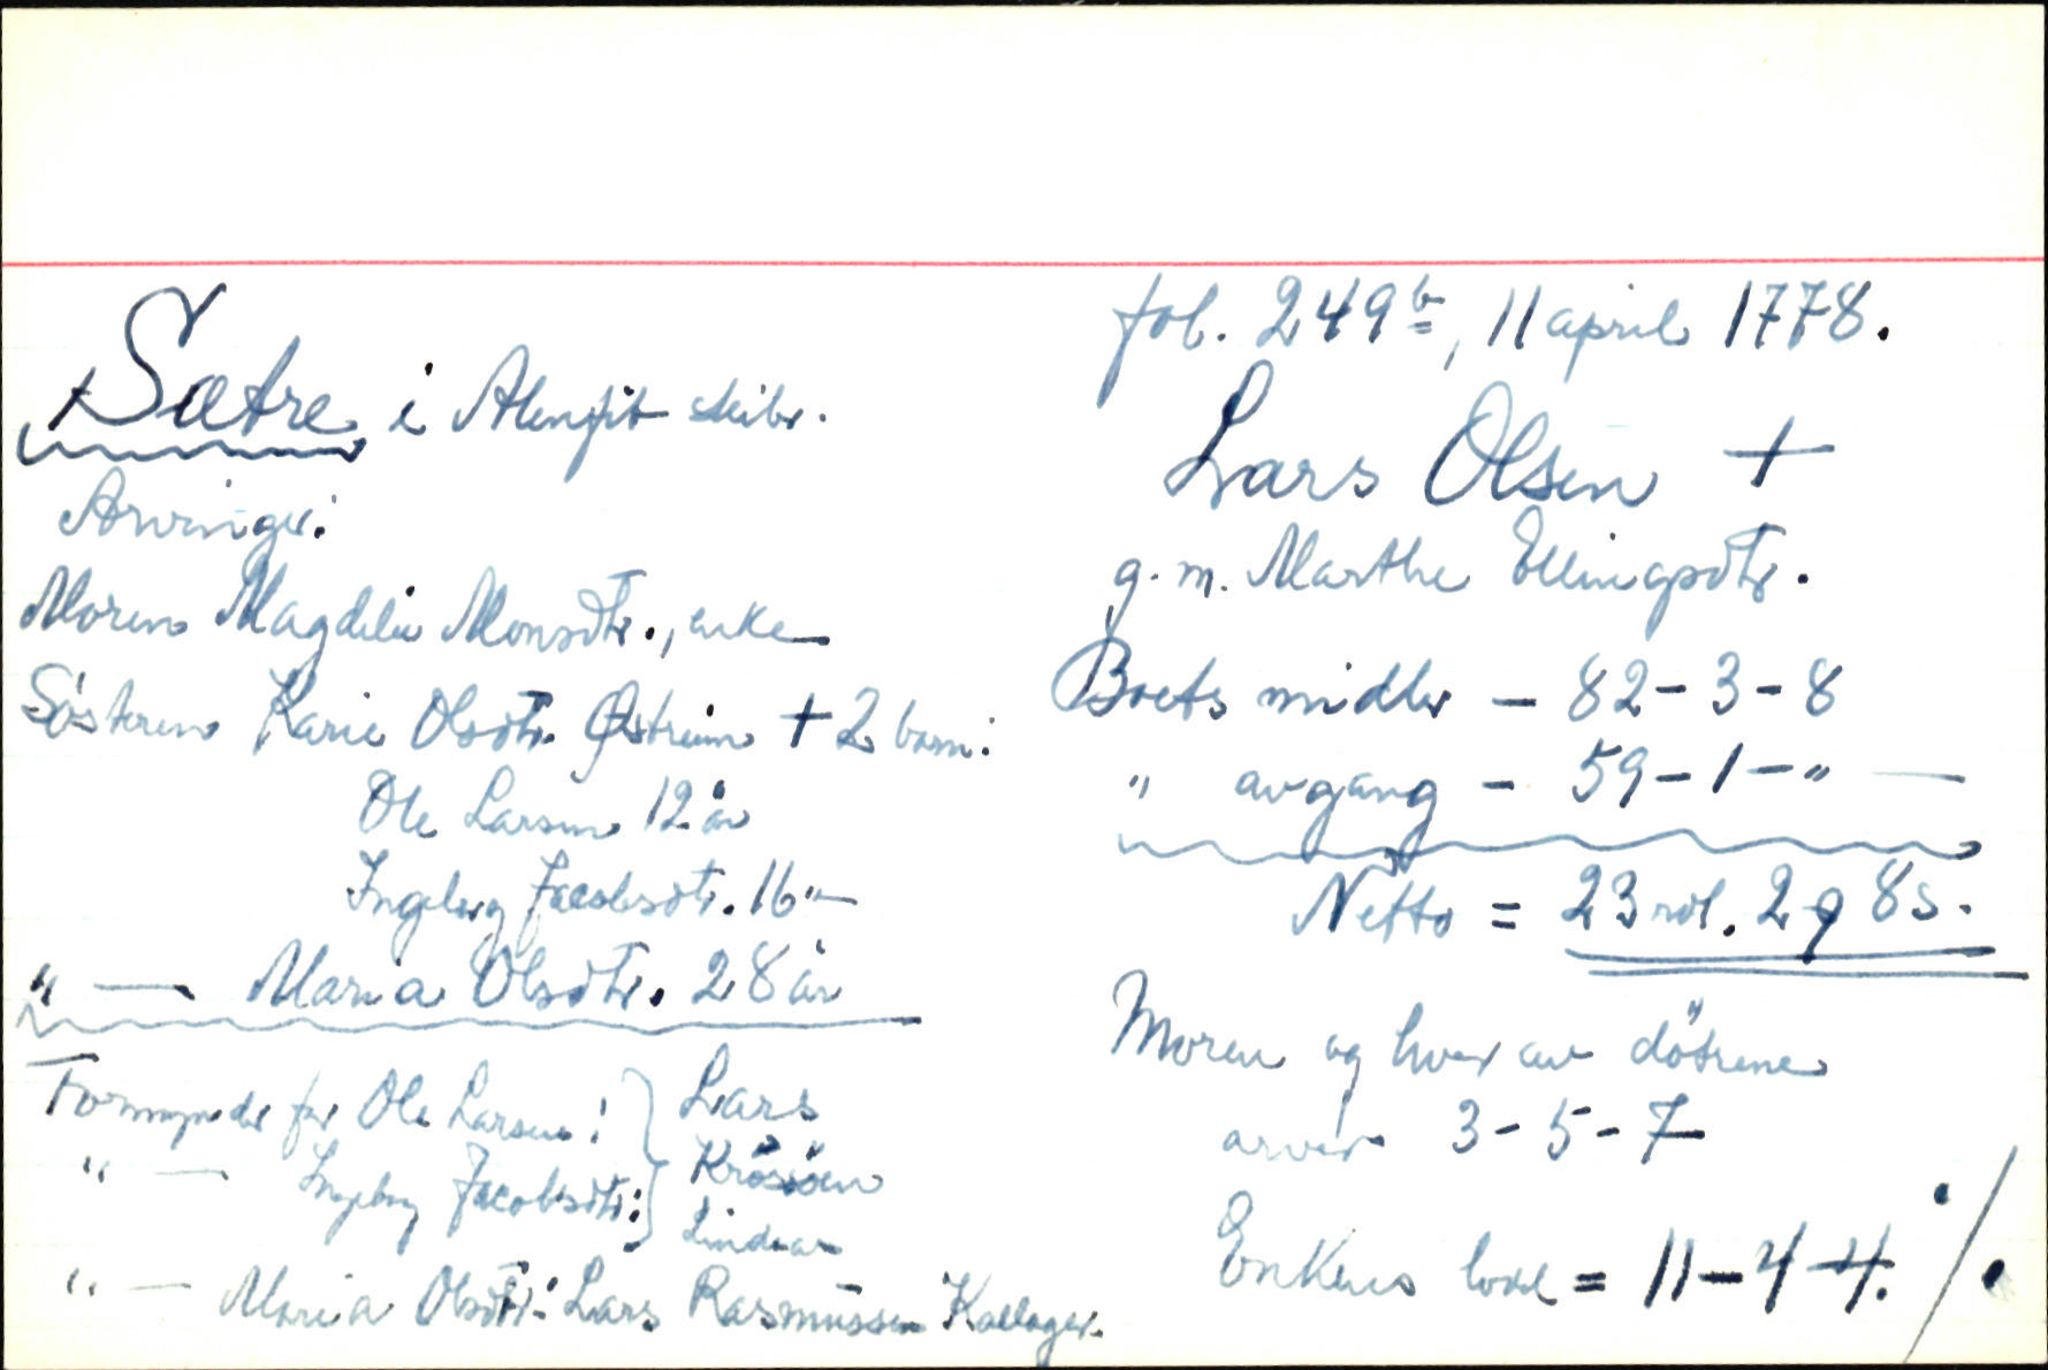 fol. 249b, 11 april 1778.
Sætre i Alenfit skibr.
Lars Olsen +
g.m. Marthe Ellingsdtr.
Arvinger:
Moren Magdeli Monsdtr., enke
Søsteren Karie Olsdtr. Østreim + 2 barn:
Ole Larsen 12 år
Ingeborg Jacobsdtr. 16 "—
" — Maria Olsdtr. 28 år
Formynder for Ole Larsen: } Lars
" — Ingeborg Jacobsdtr: } Krossøen
Lindaas
" — Maria Olsdtr: Lars Rasmussen Kallager.
Boets midler — 82-3-8
" avgang - 59-1-" —
Netto = 23 rdl. 2 q 8 s.
Moren og hver av døtrene
arver 3-5-7
Enkens lodd = 11-4-4. ./.